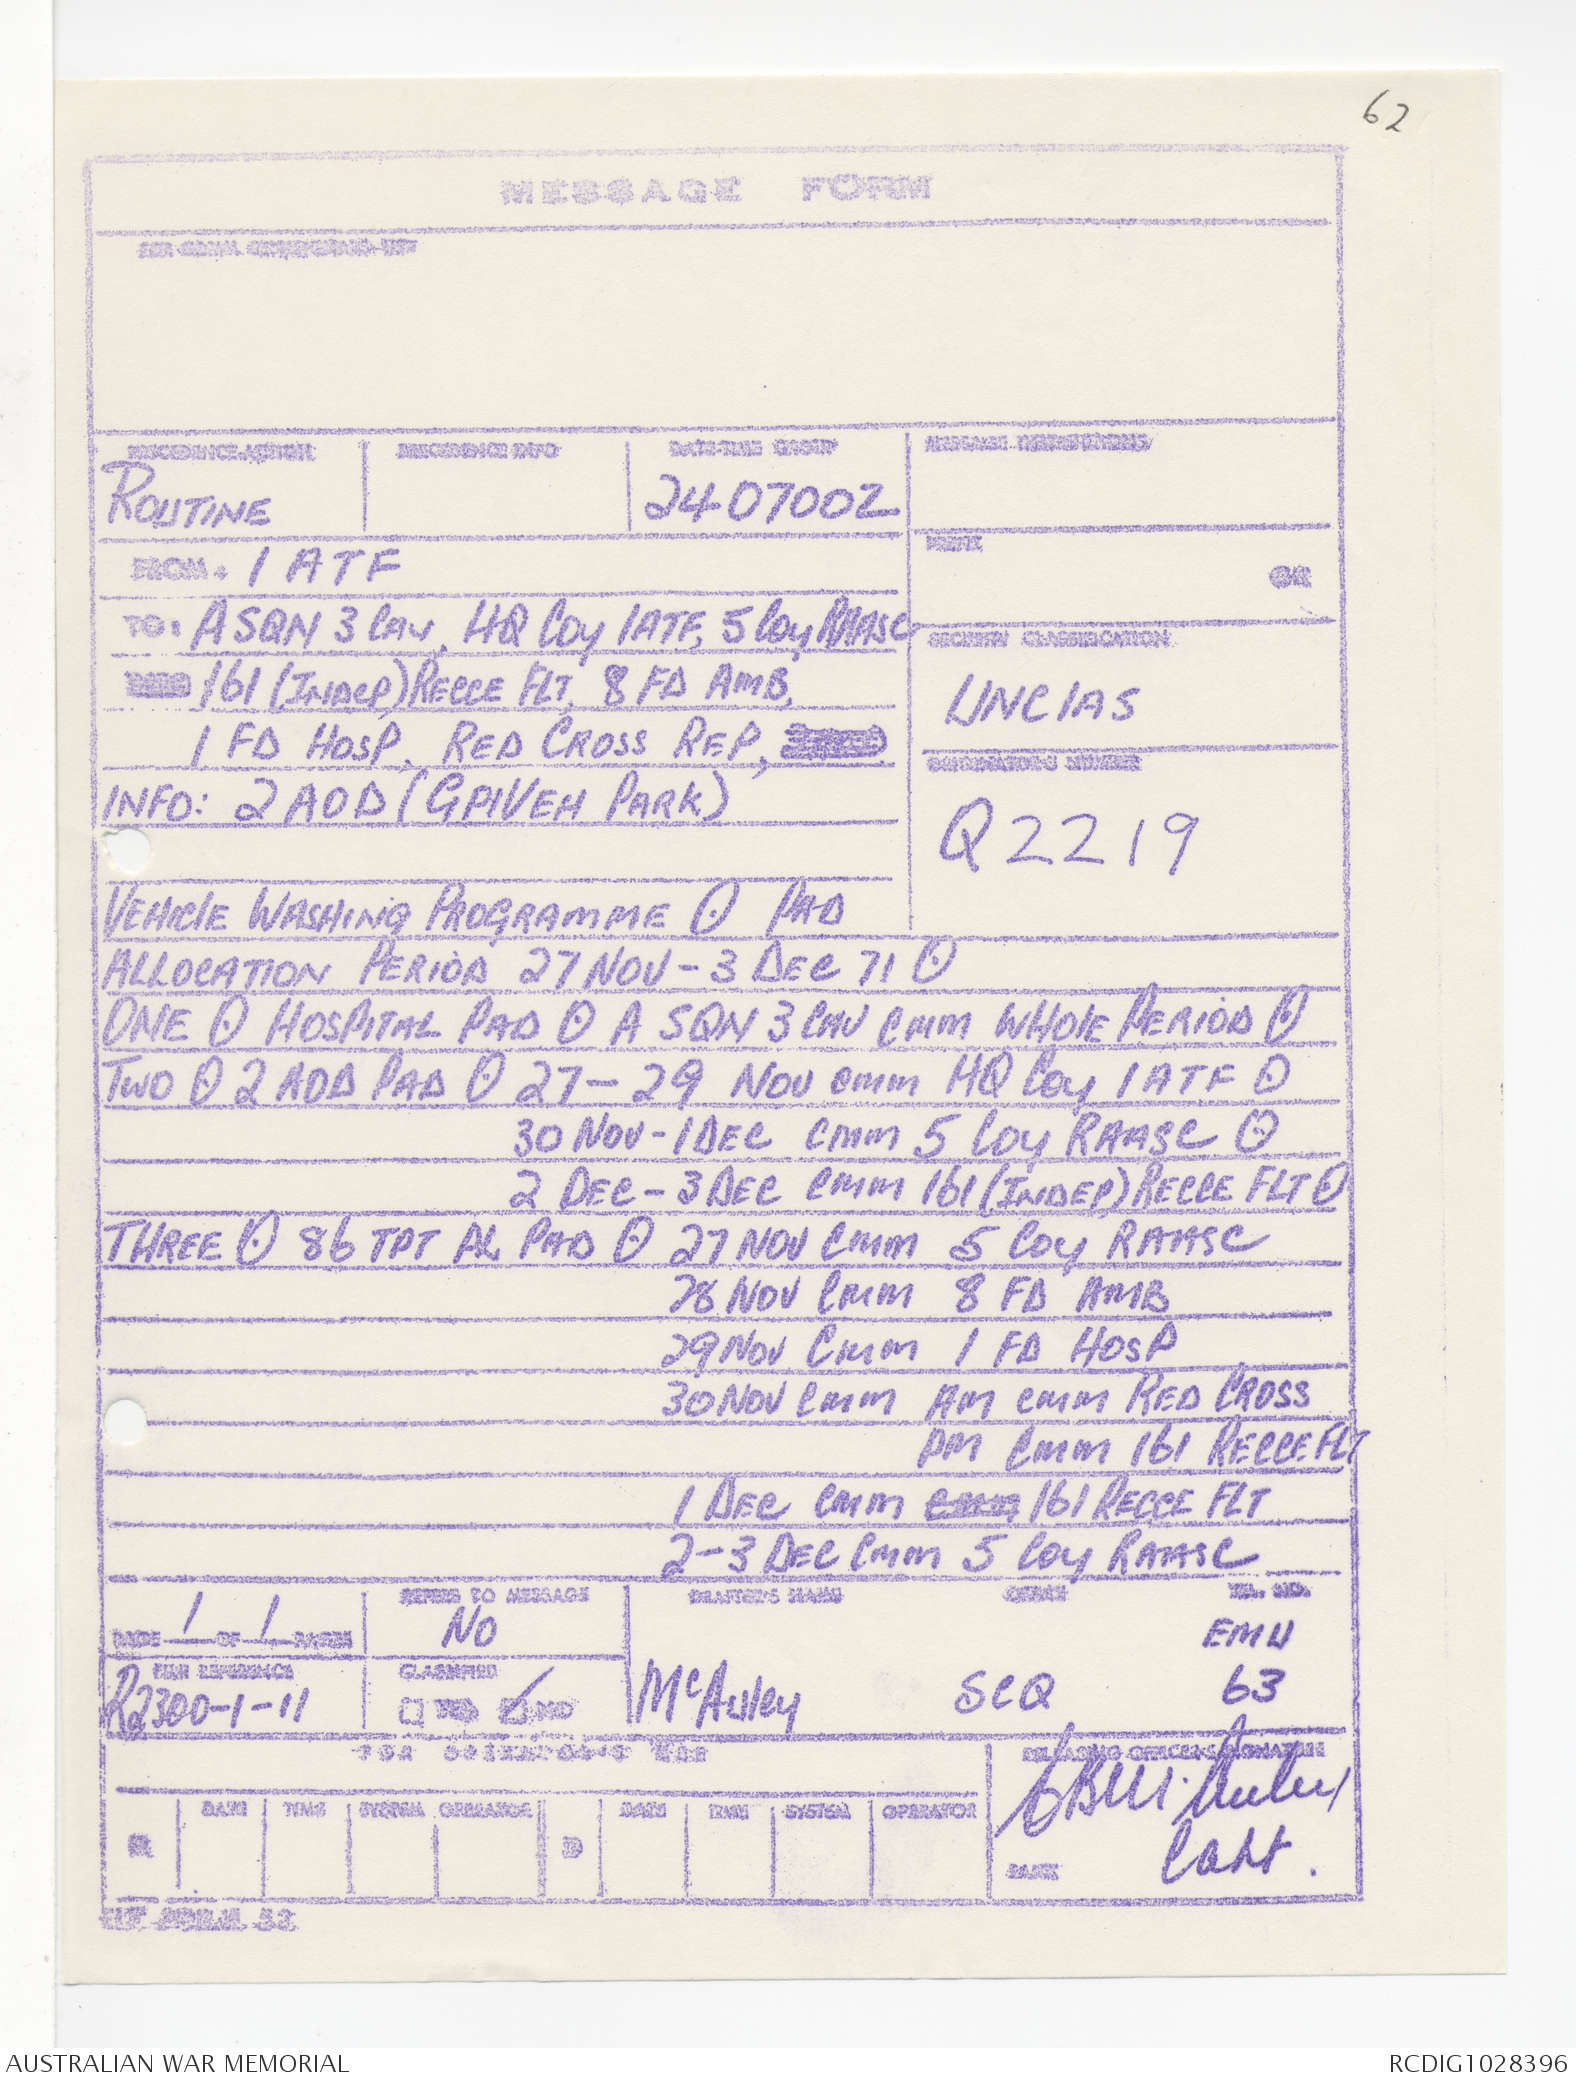 62
MESSAGE FORM
PRECEDENCE-ACTION
PRECEDENCE INFO
DATE-TIME GROUP
MESSAGE INSTRUCTIONS
ROUTINE
240700Z
PREFIX
GR
FROM: 1 ATF
TO: A SQN 3 CAV, HQ COY 1ATF, 5 COY RAASC
161 (INDEP) RECCE FLT, 8 FD AMB,
1 FD HOSP, RED CROSS REP,
INFO: 2 AOD (GP1VEH PARK)
SECURITY CLASSIFICATION
UNCLAS
ORIGINATOR'S NUMBER
Q2219
VEHICLE WASHING PROGRAMME ʘ PAD
ALLOCATION PERIOD 27 NOV - 3 DEC 71 ʘ
ONE ʘ HOSPITAL PAD ʘ A SQN 3 CAV CMM WHOLE PERIOD ʘ
TWO ʘ 2 AOD PAD ʘ 27 - 29 NOV CMM HQ COY 1 ATF ʘ
30 NOV - 1 DEC CMM 5 COY RAASC ʘ
2 DEC - 3 DEC CMM 161 (INDEP) RECCE FLT ʘ
THREE ʘ 86 TPT PL PAD ʘ 27 NOV CMM 5 COY RAASC
28 NOV CMM 8 FD AMB
29 NOV CMM 1 FD HOSP
30 NOV CMM AM CMM RED CROSS
PM CMM 161 RECCE FLT
1 DEC CMM 161 RECCE FLT
2 - 3 DEC CMM 5 COY RAASC
PAGE 1 OF 1 PAGES
REFERS TO MESSAGE
NO
DRAFTER'S NAME
OFFICE
TEL. NO.
EMU
63
FILE REFERENCE
R2300-1-11
CLASSIFIED
YES NO
McAuley
SCQ
FOR OPERATOR'S USE
RELEASING OFFICER'S SIGNATURE
R
DATE
TIME
SYSTEM
OPERATOR
D
DATE
TIME
SYSTEM
OPERATOR
RANK
Capt.
FORM 52
AUSTRALIAN WAR MEMORIAL
RCDIG1028396